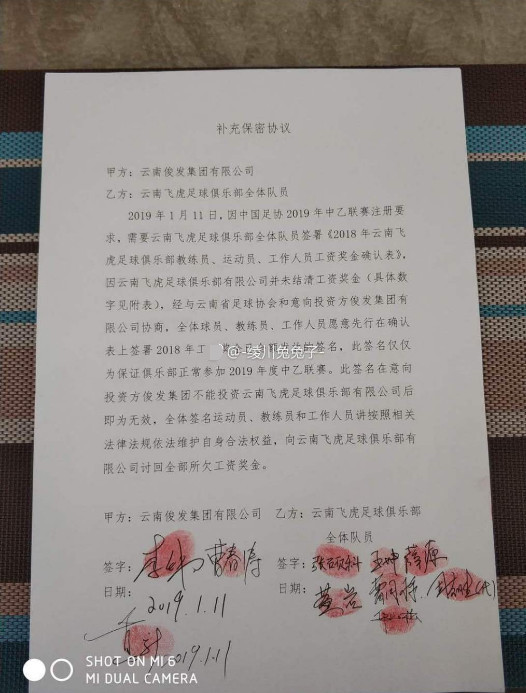 补充保密协议
甲方：云南俊发集团有限公司
乙方：云南飞虎足球俱乐部全体队员
2019年1月11日，因中国足协2019年中乙联赛注册要
求，需要云南飞虎足球俱乐部全体队员签署《2018年云南飞
虎足球俱乐部教练员、运动员、工作人员工资奖金确认表》，
因云南飞虎足球俱乐部有限公司并未结清工资奖金（具体数
字见附表），经与云南省足球协会和意向投资方俊发集团有
限公司协商，全体球员、教练员、工作人员愿意先行在确认
表上签署2018年工 签名，此签名仅仅
@-绫川兔兔子-
为保证俱乐部正常参加2019年度中乙联赛。此签名在意向
投资方俊发集团不能投资云南飞虎足球俱乐部有限公司后
即为无效，全体签名运动员、教练员和工作人员讲按照相关
法律法规依法维护自身合法权益，向云南飞虎足球俱乐部有
限公司讨回全部所欠工资奖金。
甲方：云南俊发集团有限公司 乙方：云南飞虎足球俱乐部
全体队员
签字： 曹春涛 签字：
日期： 日期：
2019.1.11
2019.1.11
SHOT ON MI 6
MI DUAL CAMERA